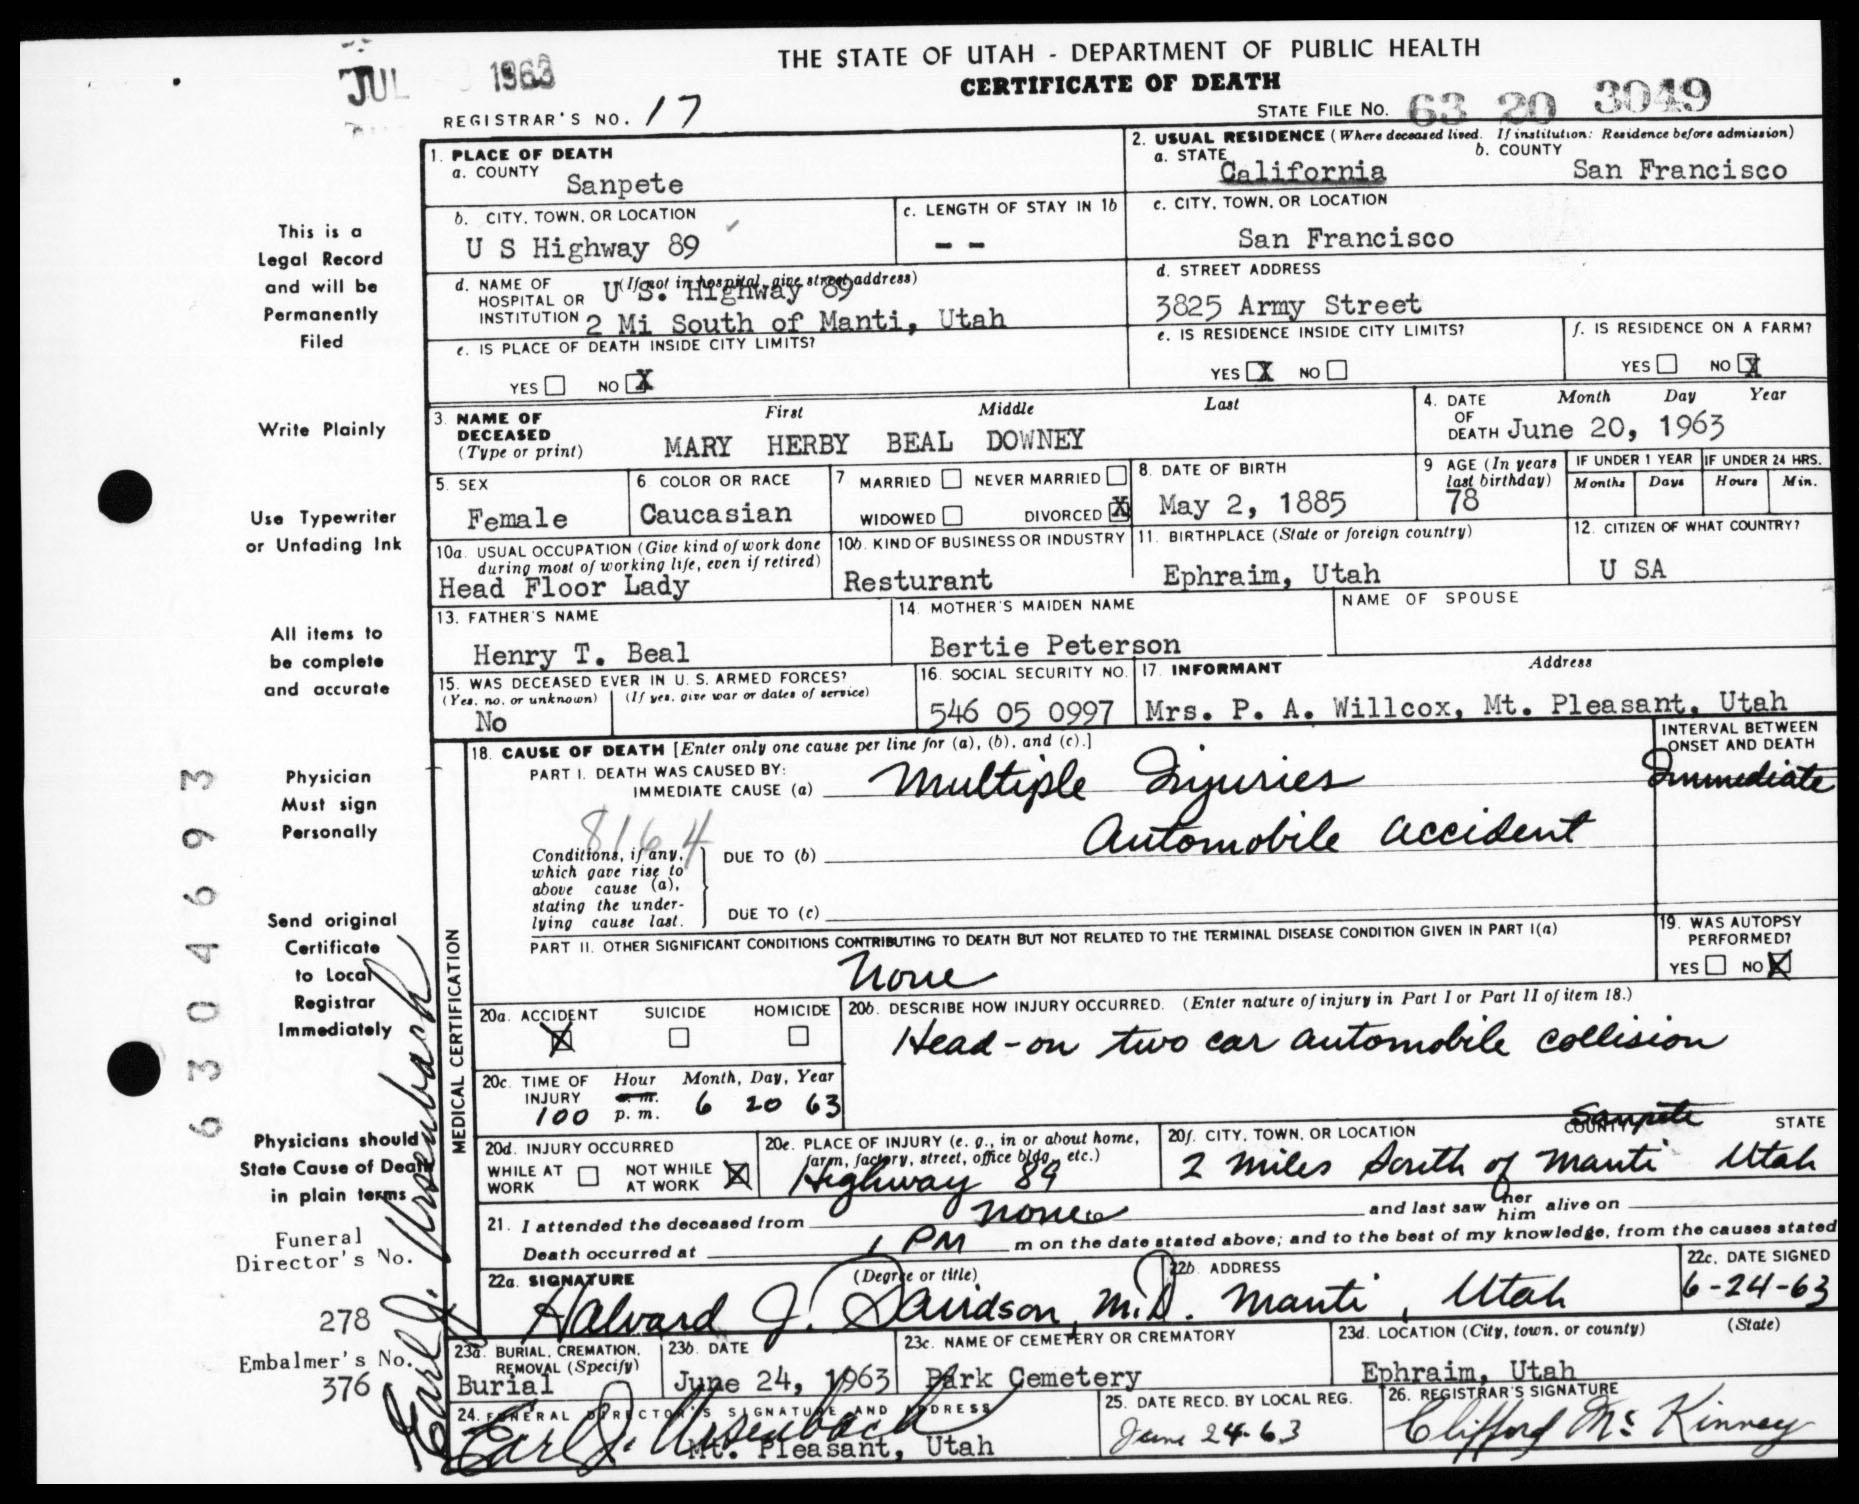 JUL 1963
THE STATE OF UTAH - DEPARTMENT OF PUBLIC HEALTH
CERTIFICATE OF DEATH
REGISTRAR'S NO. 17
STATE FILE NO. 63 20 3049
1. PLACE OF DEATH
a. COUNTY Sanpete
2. USUAL RESIDENCE (Where deceased lived. If institution: Residence before admission)
a. STATE California
b. COUNTY San Francisco
b. CITY, TOWN, OR LOCATION
U S Highway 89
c. LENGTH OF STAY IN 1b
- -
c. CITY, TOWN, OR LOCATION
San Francisco
d. NAME OF HOSPITAL OR INSTITUTION (If not in hospital, give street address)
U S. Highway 89
2 Mi South of Manti, Utah
d. STREET ADDRESS
3825 Army Street
e. IS PLACE OF DEATH INSIDE CITY LIMITS?
YES NO X
e. IS RESIDENCE INSIDE CITY LIMITS?
YES X NO
f. IS RESIDENCE ON A FARM?
YES NO X
3. NAME OF DECEASED (Type or print)
First Middle Last
MARY HERBY BEAL DOWNEY
4. DATE OF DEATH Month Day Year
June 20, 1963
5. SEX
Female
6. COLOR OR RACE
Caucasian
7 MARRIED NEVER MARRIED
WIDOWED DIVORCED X
8. DATE OF BIRTH
May 2, 1885
9 AGE (In years last birthday)
78
IF UNDER 1 YEAR IF UNDER 24 HRS.
Months Days Hours Min.
10a. USUAL OCCUPATION (Give kind of work done during most of working life, even if retired)
Head Floor Lady
10b. KIND OF BUSINESS OR INDUSTRY
Resturant
11. BIRTHPLACE (State or foreign country)
Ephraim, Utah
12. CITIZEN OF WHAT COUNTRY?
U SA
13. FATHER'S NAME
Henry T. Beal
14. MOTHER'S MAIDEN NAME
Bertie Peterson
NAME OF SPOUSE
15. WAS DECEASED EVER IN U. S. ARMED FORCES?
(Yes, no, or unknown) (If yes, give war or dates of service)
No
16. SOCIAL SECURITY NO.
546 05 0997
17. INFORMANT Address
Mrs. P. A. Willcox, Mt. Pleasant, Utah
MEDICAL CERTIFICATION
18. CAUSE OF DEATH [Enter only one cause per line for (a), (b), and (c).]
INTERVAL BETWEEN ONSET AND DEATH
PART I. DEATH WAS CAUSED BY:
IMMEDIATE CAUSE (a) Multiple Injuries
Immediate
8164
Conditions, if any, which gave rise to above cause (a), stating the underlying cause last.
DUE TO (b) Automobile accident
DUE TO (c)
PART II. OTHER SIGNIFICANT CONDITIONS CONTRIBUTING TO DEATH BUT NOT RELATED TO THE TERMINAL DISEASE CONDITION GIVEN IN PART I(a)
None
19. WAS AUTOPSY PERFORMED?
YES NO X
20a. ACCIDENT X SUICIDE HOMICIDE
20b. DESCRIBE HOW INJURY OCCURRED. (Enter nature of injury in Part I or Part II of item 18.)
Head-on two car automobile collision
20c. TIME OF INJURY Hour Month, Day, Year
a. m.
100 p. m. 6 20 63
20d. INJURY OCCURRED
WHILE AT WORK NOT WHILE AT WORK X
20e. PLACE OF INJURY (e. g., in or about home, farm, factory, street, office bldg., etc.)
Highway 89
20f. CITY, TOWN, OR LOCATION COUNTY STATE
Sanpete
2 miles South of Manti Utah
21. I attended the deceased from none to and last saw her him alive on
Death occurred at 1 PM m on the date stated above; and to the best of my knowledge, from the causes stated
22a. SIGNATURE (Degree or title)
Halvard J. Davidson, M.D.
22b. ADDRESS
Manti, Utah
22c. DATE SIGNED
6-24-63
23a. BURIAL, CREMATION, REMOVAL (Specify)
Burial
23b. DATE
June 24, 1963
23c. NAME OF CEMETERY OR CREMATORY
Park Cemetery
23d. LOCATION (City, town, or county) (State)
Ephraim, Utah
24. FUNERAL DIRECTOR'S SIGNATURE AND ADDRESS
Earl J. Ursenbach
Mt. Pleasant, Utah
25. DATE RECD. BY LOCAL REG.
June 24-63
26. REGISTRAR'S SIGNATURE
Clifford Mc Kinney
This is a
Legal Record
and will be
Permanently
Filed
Write Plainly
Use Typewriter
or Unfading Ink
All items to
be complete
and accurate
Physician
Must sign
Personally
Send original
Certificate
to Local
Registrar
Immediately
Physicians should
State Cause of Death
in plain terms
Funeral
Director's No.
278
Embalmer's No.
376
Earl J. Ursenbach
6304693